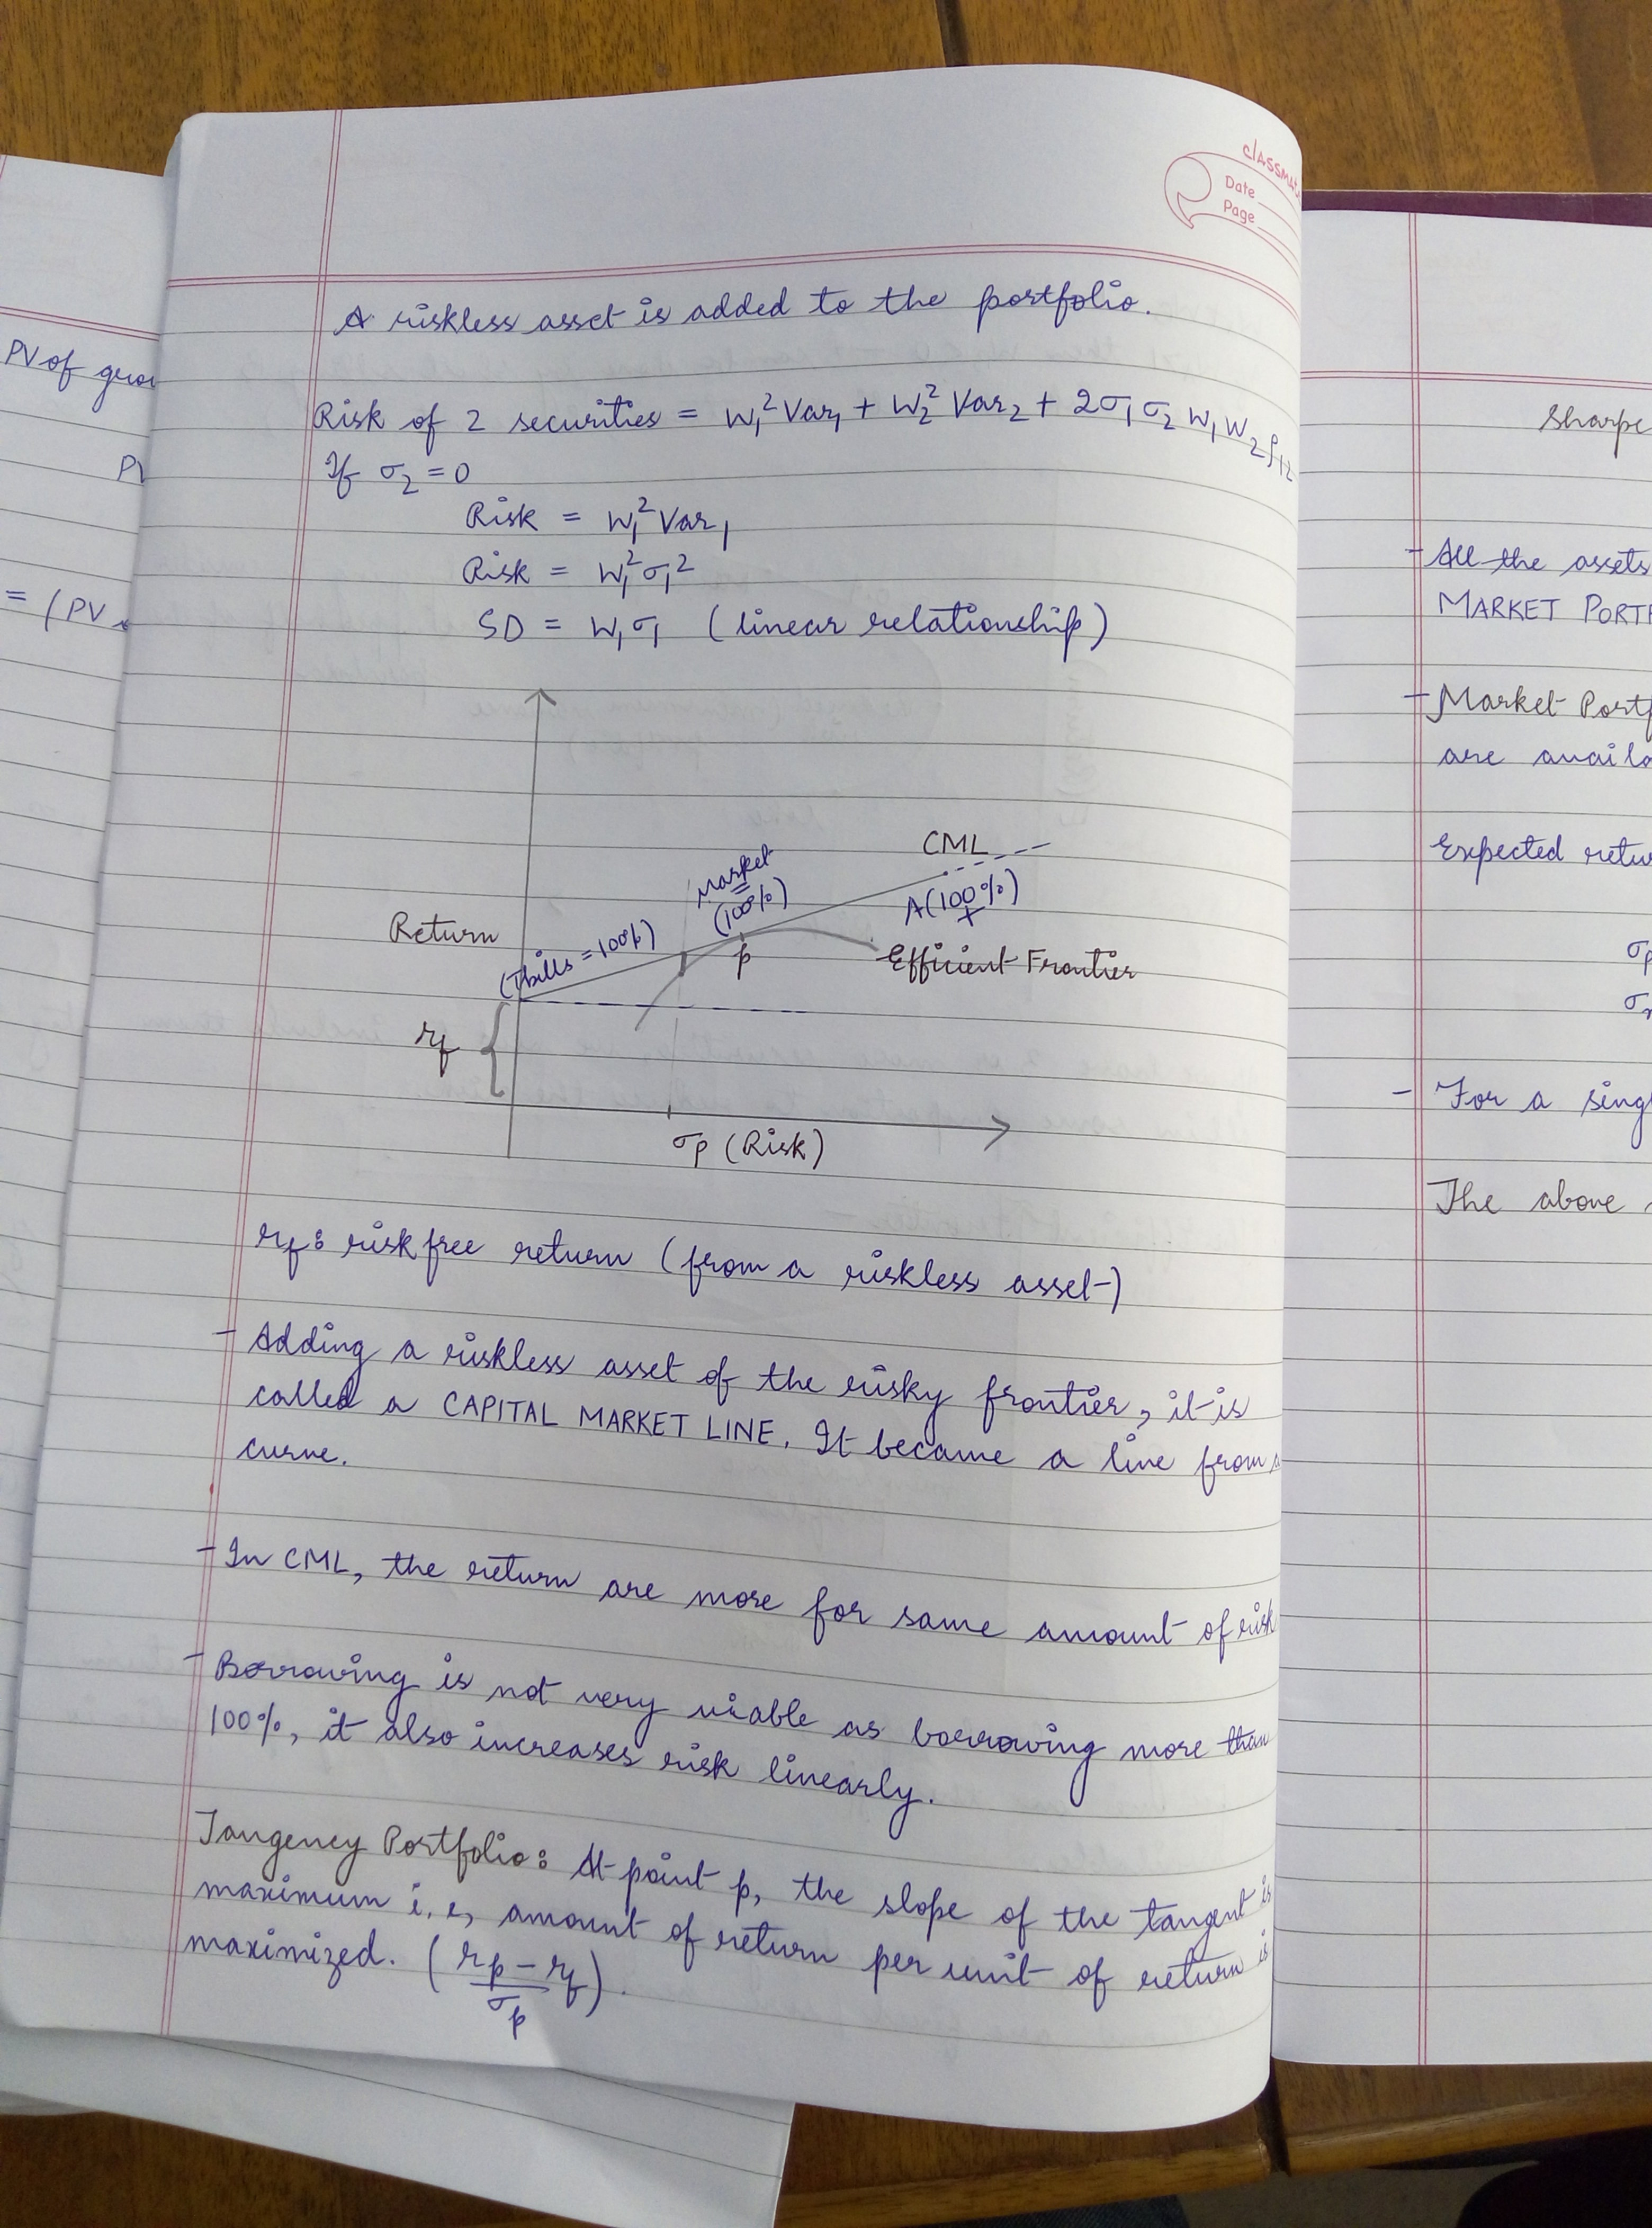 classmate
Date
Page
A riskless asset is added to the portfolio.
Risk of 2 securities = W₁² Var₁ + W₂² Var₂ + 2σ₁ σ₂ W₁ W₂ ρ₁₂
If σ₂ = 0
Risk = W₁² Var₁
Risk = W₁² σ₁²
SD = W₁ σ₁ (linear relationship)
CML
Market
(100%)
A (100%)
+
Return
(Tbills = 100%)
p
Efficient Frontier
rf
σp (Risk)
rf: risk free return (from a riskless asset)
- Adding a riskless asset of the risky frontier, it is
called a CAPITAL MARKET LINE. It became a line from a
curve.
- In CML, the return are more for same amount of risk
- Borrowing is not very viable as borrowing more than
100%, it also increases risk linearly.
Tangency Portfolio: At point p, the slope of the tangent is
maximum i.e, amount of return per unit of return is
maximized. (rp - rf / σp).
PV of
PV
= (PV
Sharpe
- All the assets
MARKET PORTF
- Market Portf
are availa
Expected retu
σp
σ
- For a singl
The above